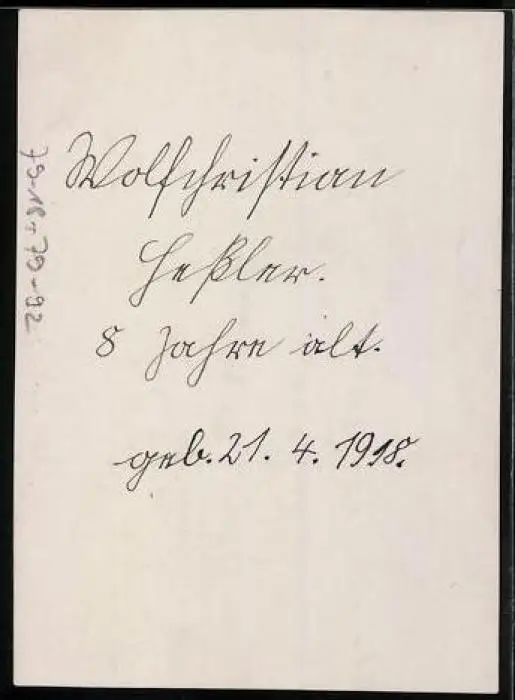 Wolfchristian
Heßler.
8 Jahre alt.
geb. 21. 4. 1918.